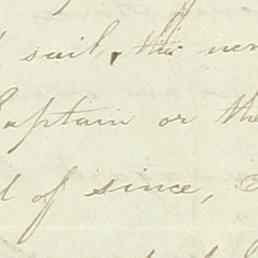 sail, this
Captain or the
of since,